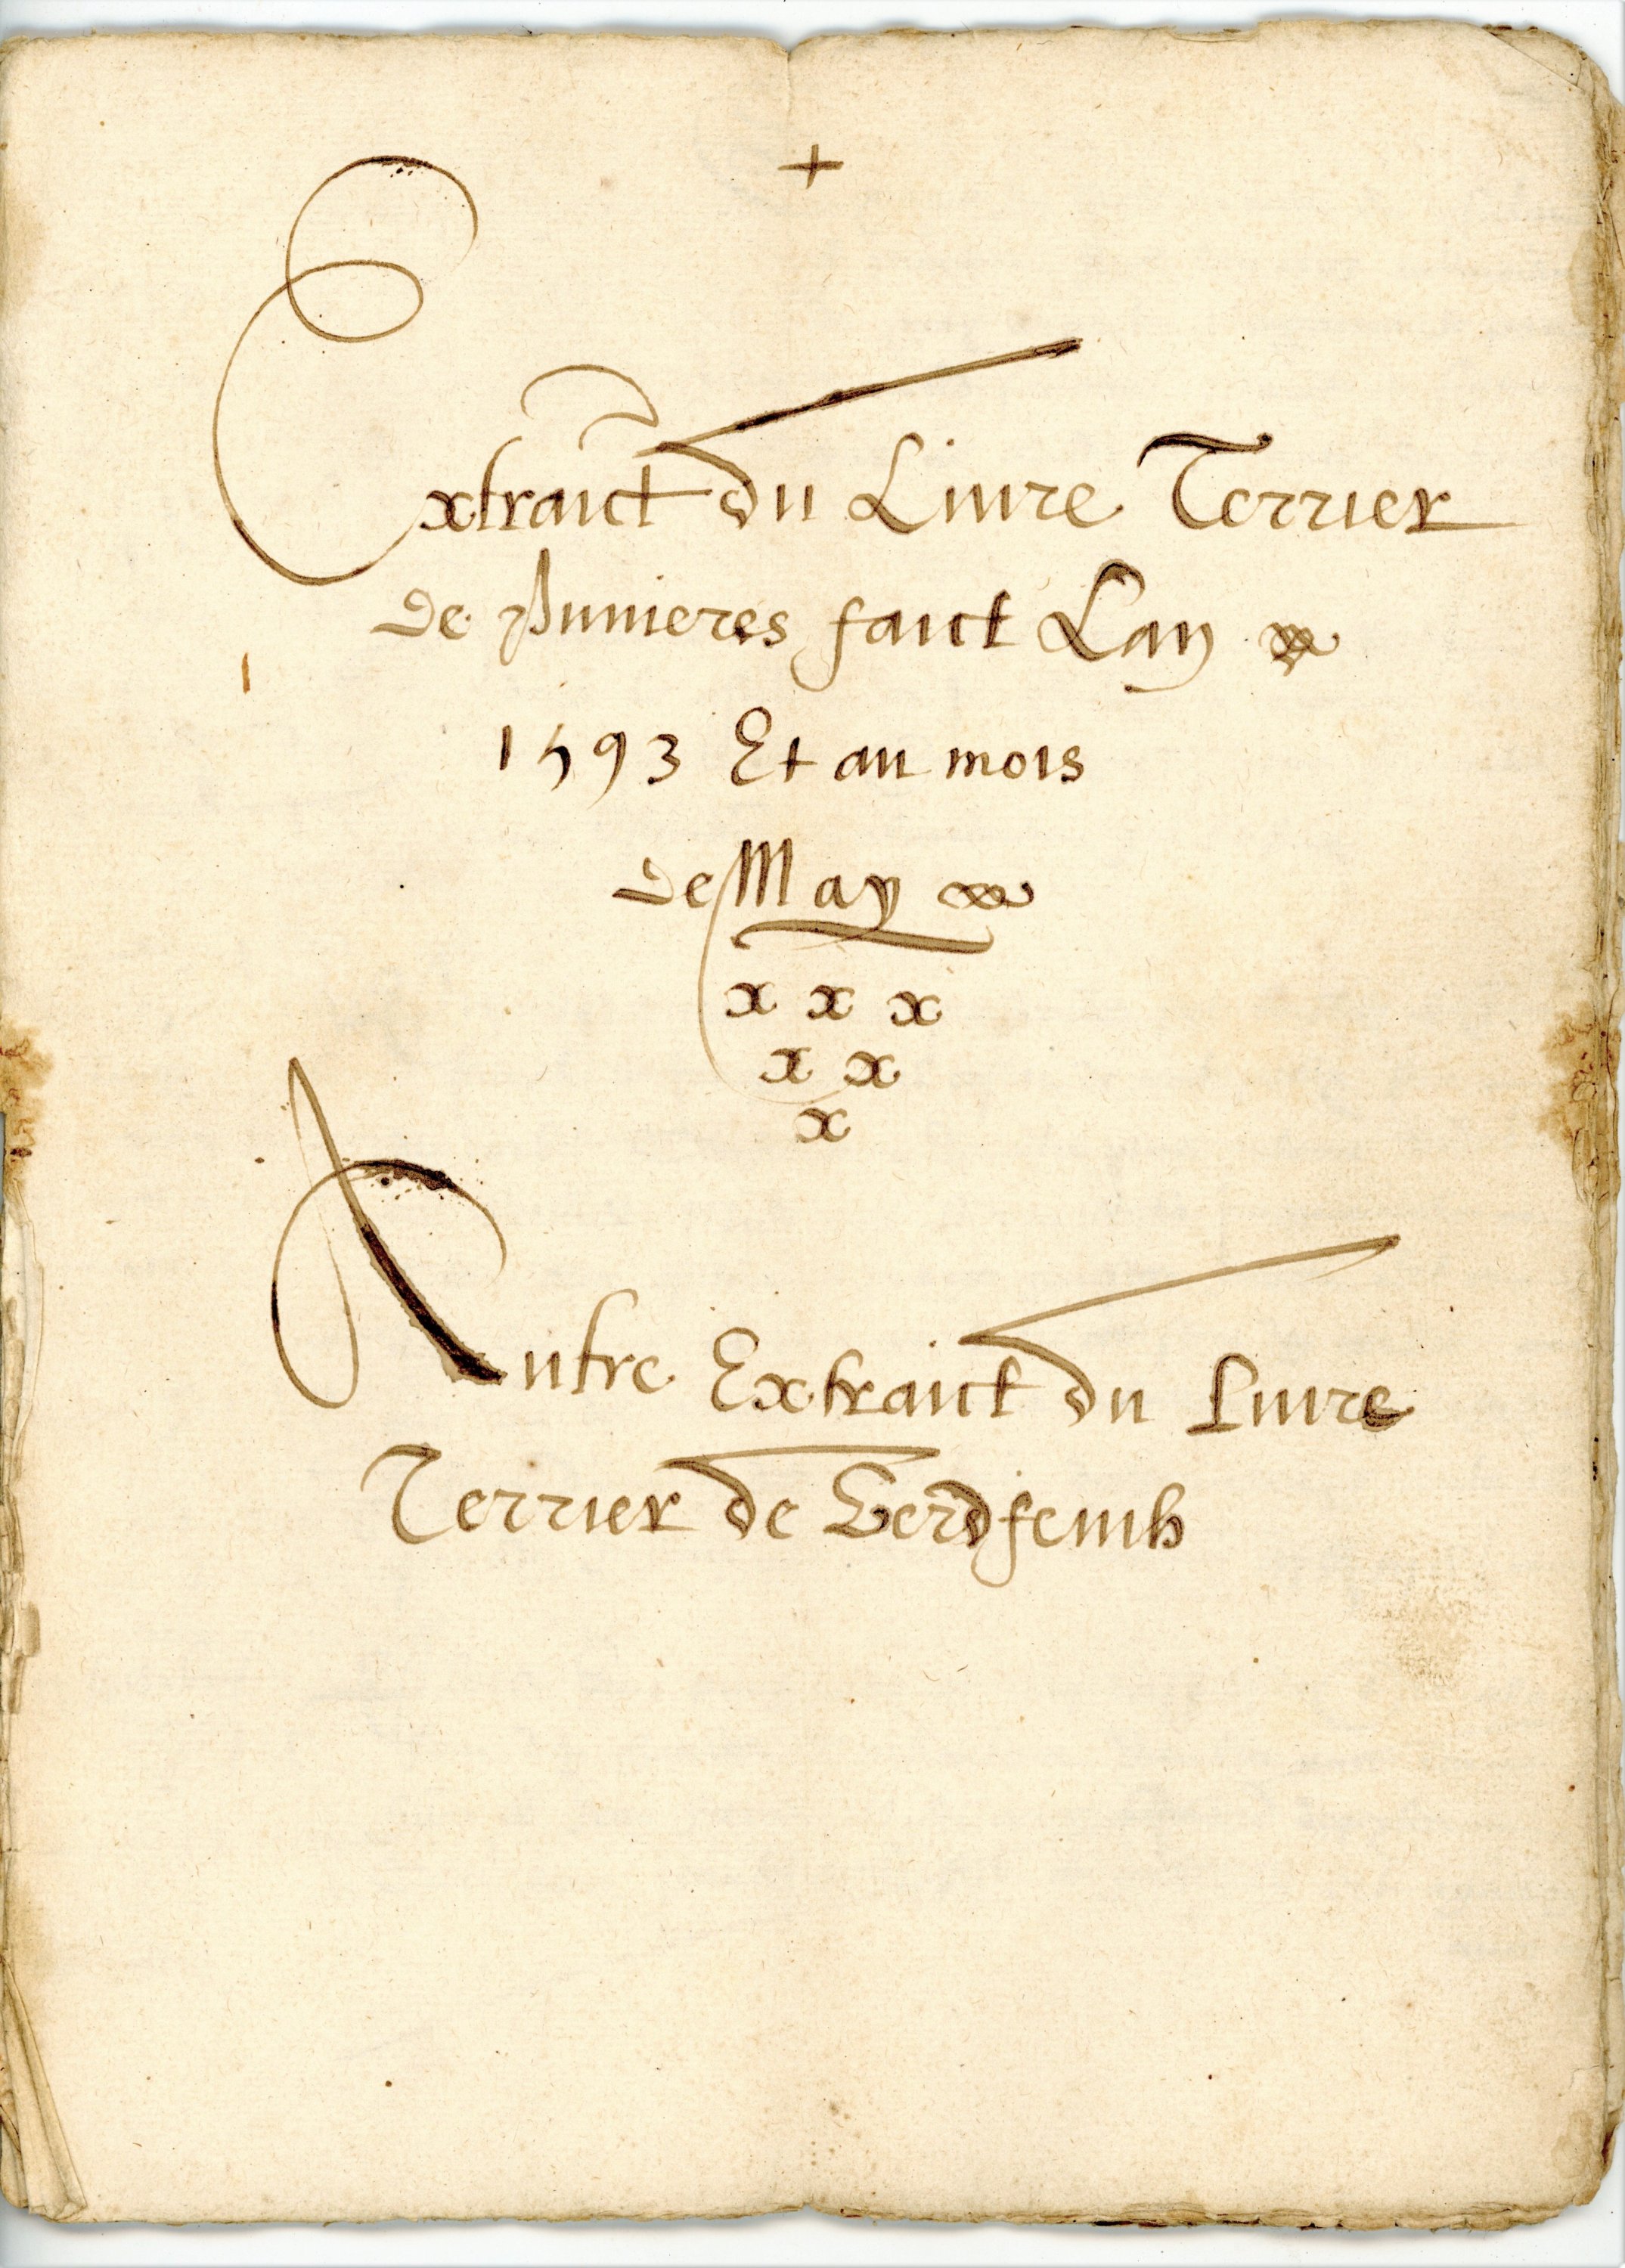 +
Extraict du Liure Terrier
de faict Lan
1593 Et au mois
de May
x x x
x x
x
Autre Extraict du Liure
Terrier de